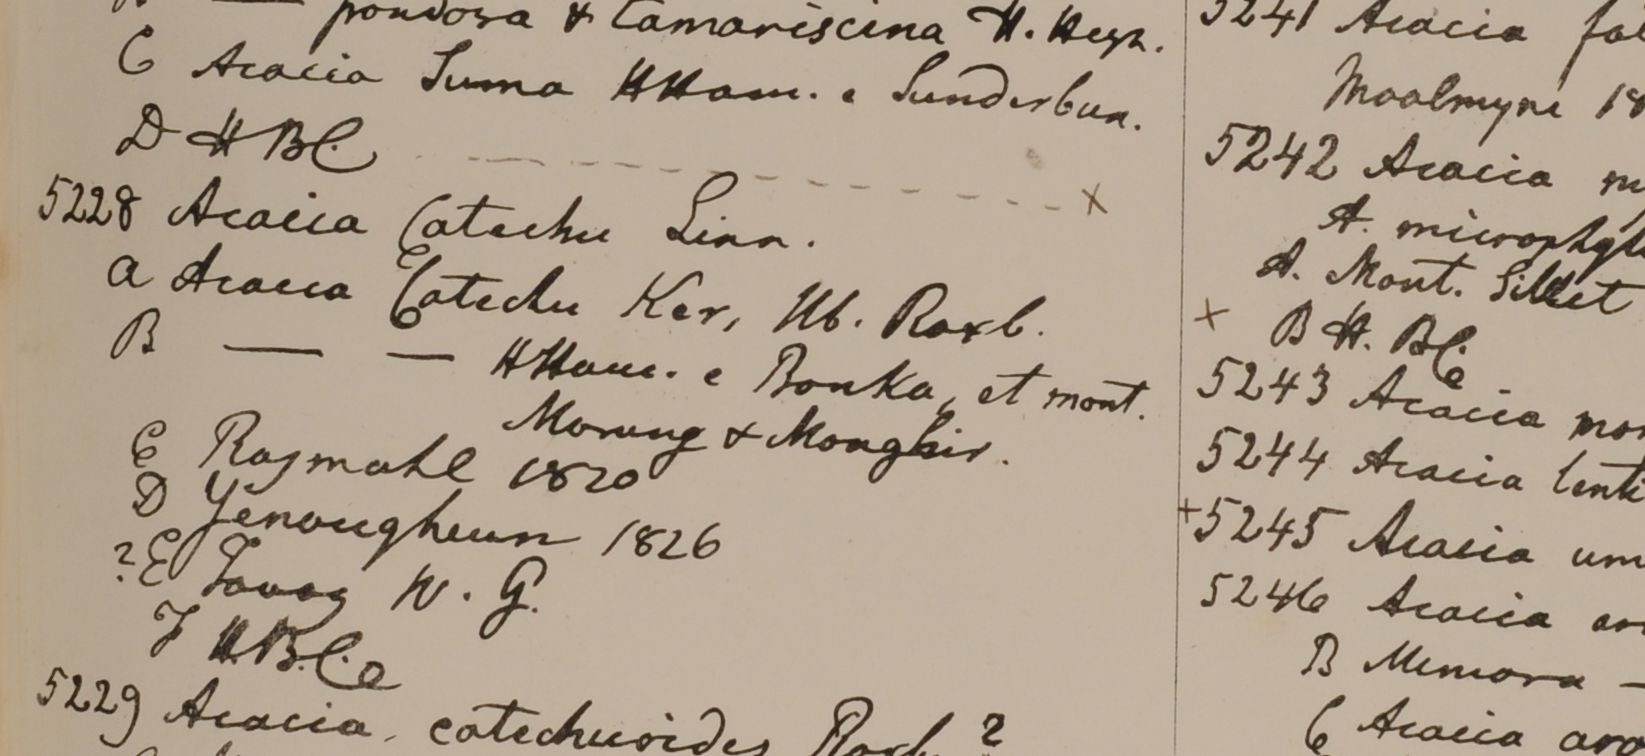 pondosa & tamariscina H. Heyn.
C Acacia Suma HHam. e Sunderbun.
D H BC
5228 Acacia Catechu Linn.
a Acacia Catechu Ker, Hb. Roxb.
B — — HHam. e Bonka, et mont.
Morung & Monghir.
C Rajmahl 1820
D Yenougheun 1826
?E Tavoy W. G.
F H.B.C.
5229 Acacia catechuoides Roxb ?
5241 Acacia
Moalmyne 18
5242 Acacia
A. microphyl
A. Mont. Sillet
B H. BC
5243 Acacia mo
5244 Acacia lenti
5245 Acacia um
5246 Acacia ar
B Mimosa —
C Acacia ara